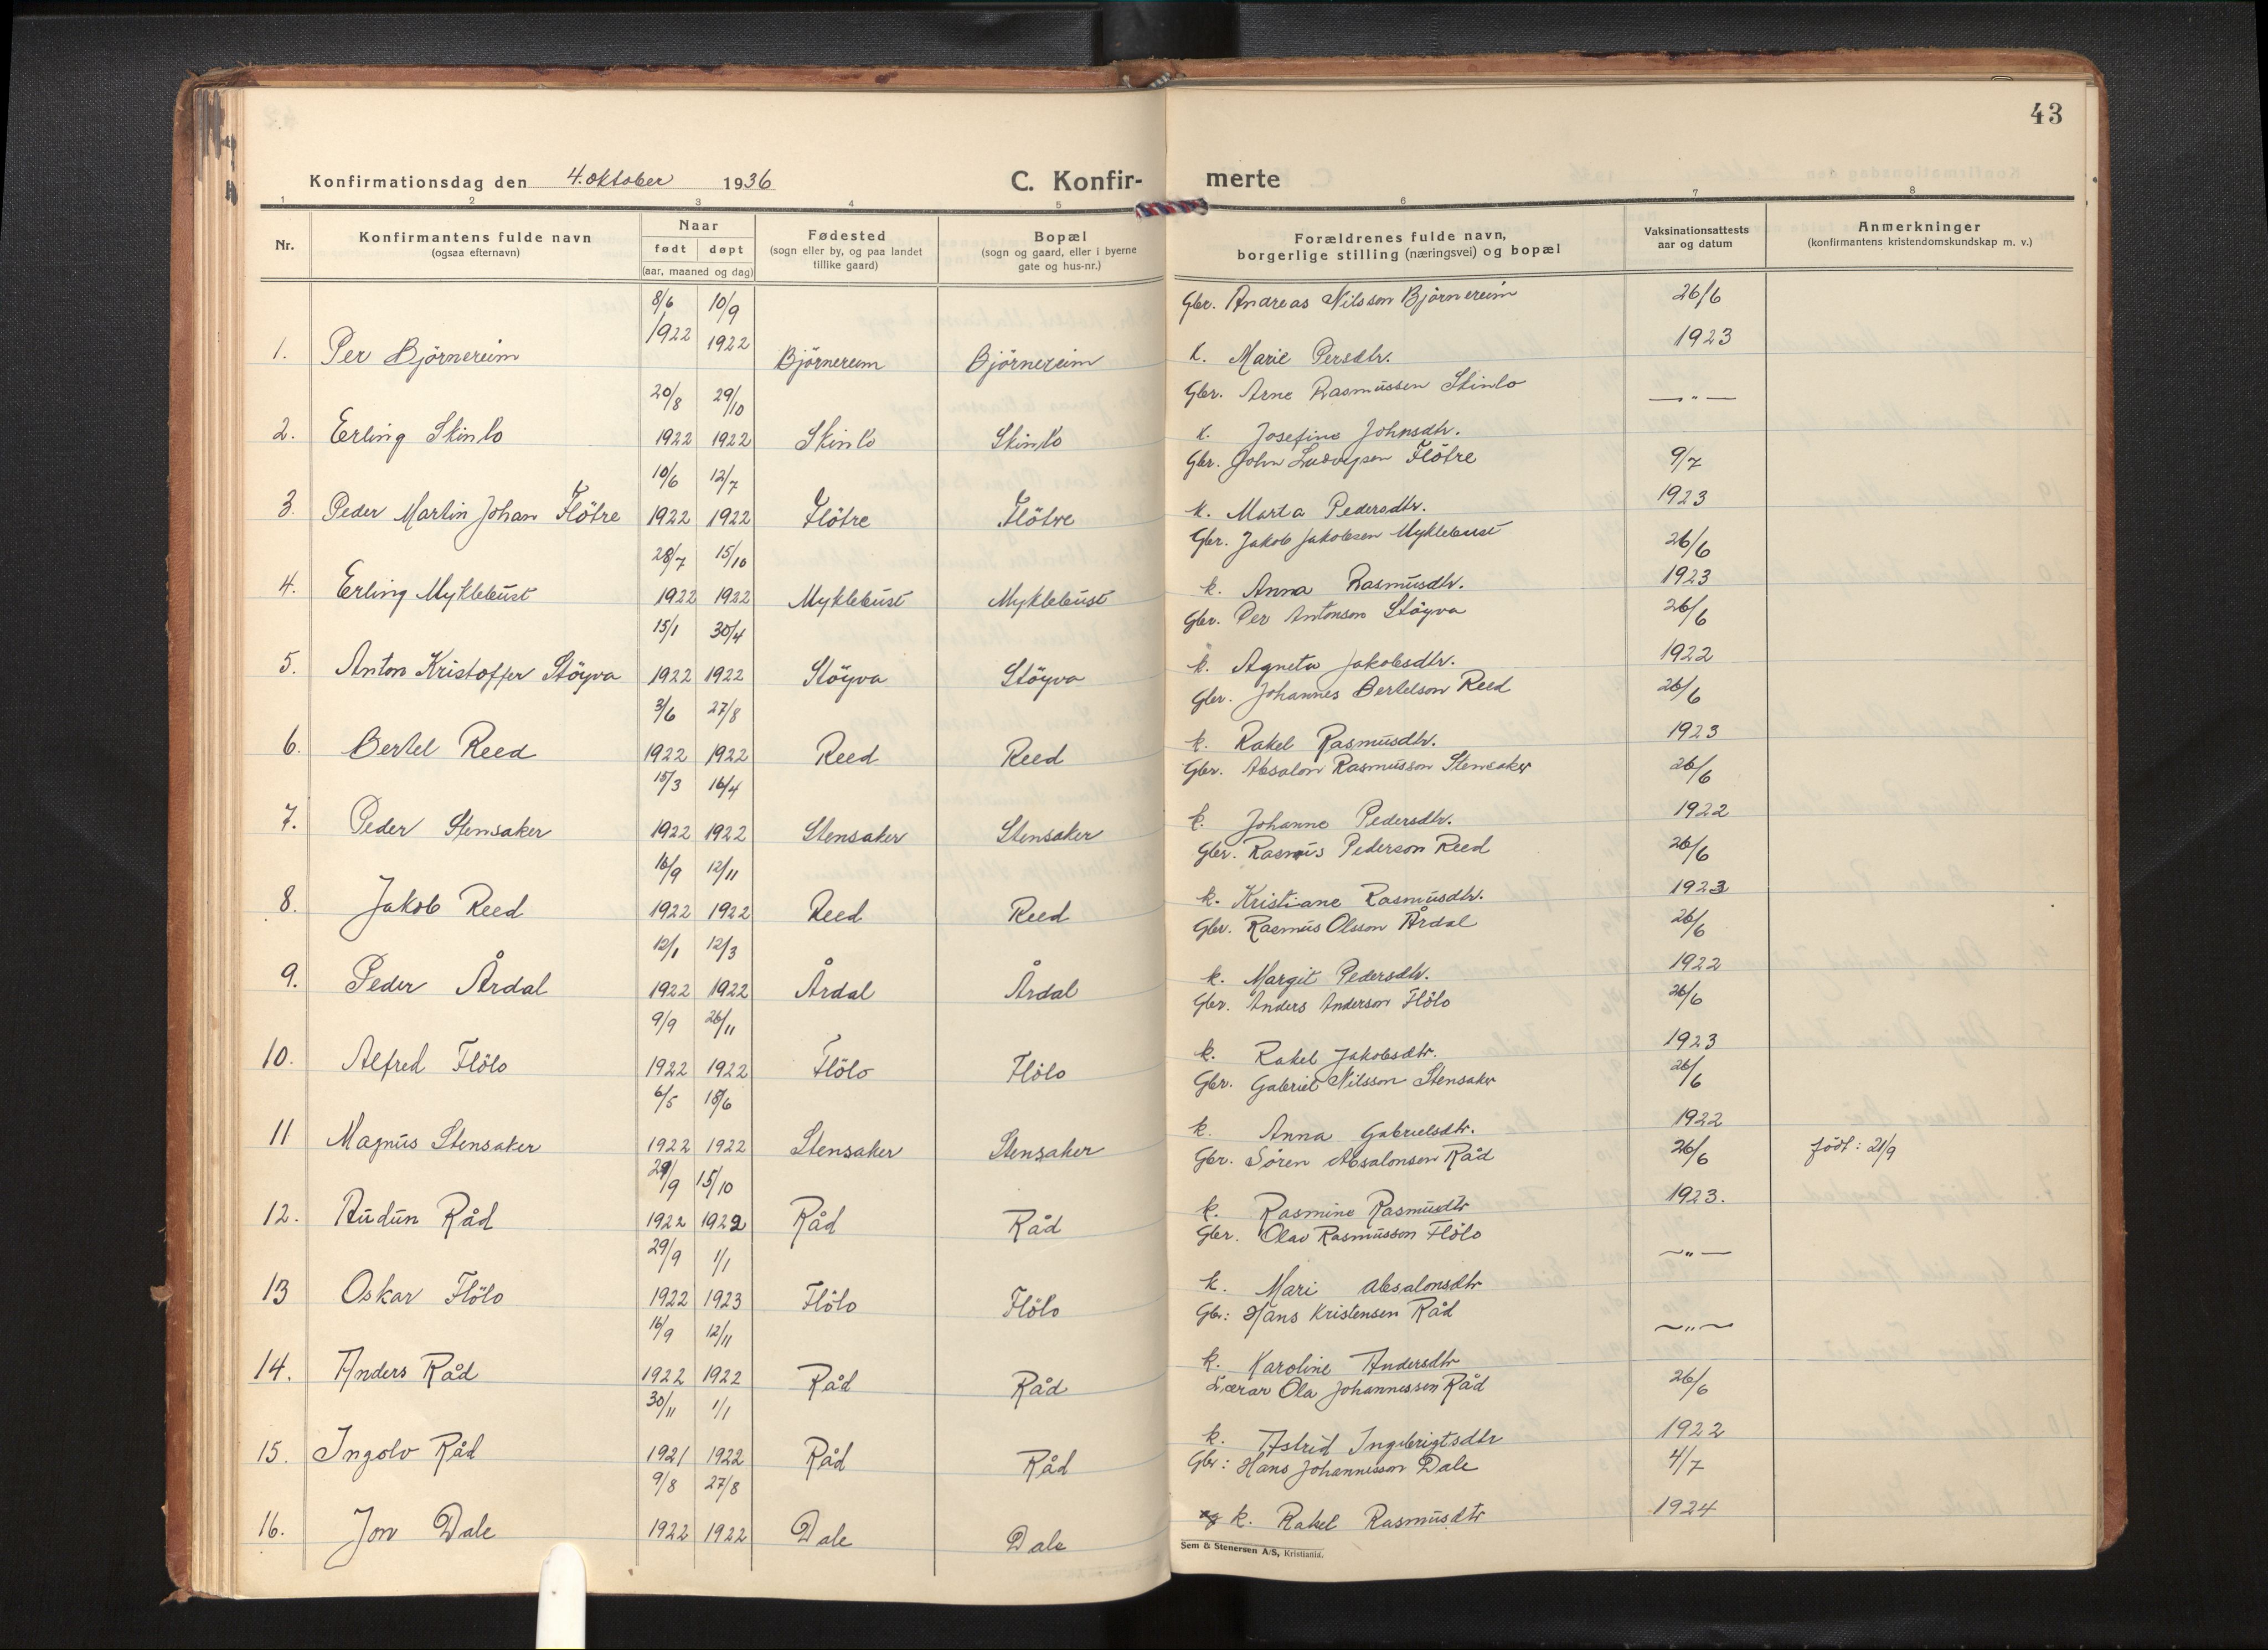 43
Konfirmationsdag den 4. oktober 1936 C. Konfir- merte
1 2 3 4 5 6 7 8
Nr. Konfirmantens fulde navn (ogsaa efternavn) Naar født døpt (aar, maaned og dag) Fødested (sogn eller by, og paa landet tillike gaard) Bopæl (sogn og gaard, eller i byerne gate og hus-nr.) Forældrenes fulde navn, borgerlige stilling (næringsvei) og bopæl Vaksinationsattests aar og datum Anmerkninger (konfirmantens kristendomskundskap m. v.)
8/6 10/9 Gbr. Andreas Nilsson Björnereim 26/6
1. Per Björnereim 1922 1922 Björnereim Björnereim k. Marie Persdtr. 1923
20/8 29/10 Gbr. Arne Rasmussen Skinlo —"—
2. Erling Skinlo 1922 1922 Skinlo Skinlo k. Josefine Johnsdtr.
10/6 12/7 Gbr. John Ludvigsen Flötre 9/7
3. Peder Martin Johan Flötre 1922 1922 Flötre Flötre k. Marta Pedersdtr. 1923
28/7 15/10 Gbr. Jakob Jakobsen Myklebust 26/6
4. Erling Myklebust 1922 1922 Myklebust Myklebust k. Anna Rasmusdtr. 1923
15/1 30/4 Gbr. Per Antonson Stöyva 26/6
5. Anton Kristoffer Stöyva 1922 1922 Stöyva Stöyva k. Agneta Jakobsdtr. 1922
3/6 27/8 Gbr. Johannes Bertelson Reed 26/6
6. Bertel Reed 1922 1922 Reed Reed k. Rakel Rasmusdtr. 1923
15/3 16/4 Gbr. Absalon Rasmusson Stensaker 26/6
7. Peder Stensaker 1922 1922 Stensaker Stensaker k. Johanne Pedersdtr. 1922
16/9 12/11 Gbr. Rasmus Pederson Reed 26/6
8. Jakob Reed 1922 1922 Reed Reed k. Kristiane Rasmusdtr. 1923
12/1 12/3 Gbr. Rasmus Olsson Årdal 26/6
9. Peder Årdal 1922 1922 Årdal Årdal k. Margit Pedersdtr. 1922
9/9 26/11 Gbr. Anders Anderson Flölo 26/6
10. Alfred Flölo 1922 1922 Flölo Flölo k. Rakel Jakobsdtr. 1923
6/5 18/6 Gbr. Gabriel Nilsson Stensaker 26/6
11 Magnus Stensaker 1922 1922 Stensaker Stensaker k. Anna Gabrielsdtr. 1922
/9 15/10 Gbr. Sören Absalonsen Råd 26/6 födt: 21/9
12. Audun Råd 1922 1922 Råd Råd k. Rasmine Rasmusdtr 1923.
29/9 1/1 Gbr. Olav Rasmusson Flölo —"—
13 Oskar Flölo 1922 1923 Flölo Flölo k. Mari Absalonsdtr
16/9 12/11 Gbr: Hans Kristensen Råd —"—
14. Anders Råd 1922 1922 Råd Råd k. Karoline Andersdtr
30/11 1/1 Lærar Ola Johannessen Råd 26/6
15. Ingolv Råd 1921 1922 Råd Råd k. Astrid Ingebrigtsdtr 1922
9/8 27/8 Gbr: Hans Johannesson Dale 4/7
16. Jon Dale 1922 1922 Dale Dale og k. Rakel Rasmusdtr 1924
Sem & Stenersen A/S, Kristiania.